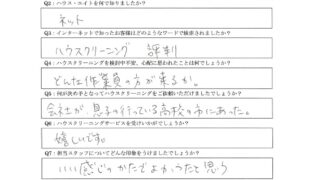 Q2：ハウス・エイトを何で知りましたか？
ネット
Q3：インターネットで知ったお客様はどのようなワードで検索されましたか？
ハウスクリーニング 評判
Q4：ハウスクリーニングを検討中不安、心配に思われたことは何でしょうか？
どんな作業員の方が来るか。
Q5：何が決め手となってハウスクリーニングをご依頼いただけましたでしょうか？
会社が息子の行っている高校の市にあった。
Q6：ハウスクリーニングサービスを受けいかがでしょうか？
嬉しいです。
Q7：担当スタッフについてどんな印象をうけましたでしょうか？
いい感じのかたでよかったと思う